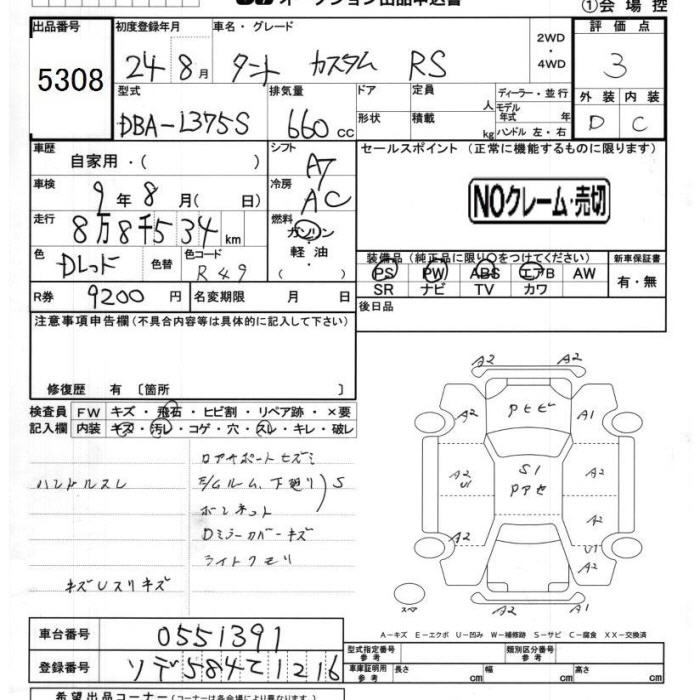 オークション出品申込書
①会場控
出品番号 初度登録年月 車名・グレード 2WD・4WD 評価点
5308 24 8月 タント カスタム RS 3
型式 排気量 ドア 定員 人 ディーラー・並行 外装 内装
DBA-L375S 660cc 形状 積載 kg モデル年式 年 ハンドル 左・右 D C
車歴 自家用・( ) シフト AT セールスポイント (正常に機能するものに限ります)
車検 9年8月( 日) 冷房 AC NOクレーム・売切
走行 8万8千534km 燃料 ガソリン・軽油・( )
色 Dレッド 色替 色コード R49 装備品 (純正品に限り○をつけてください) 新車保証書
PS PW ABS エアB AW 有・無
SR ナビ TV カワ
R券 9200円 名変期限 月 日 後日品
注意事項申告欄 (不具合内容等は具体的に記入して下さい)
修復歴 有 〔箇所 〕
検査員 FW キズ・飛石・ヒビ割・リペア跡・×要
記入欄 内装 キズ・汚レ・コゲ・穴・スレ・キレ・破レ
ロアサポートキズミ
ハンドルスレ E/Gルーム、下廻り S
ボンネット
Dミラーカバーキズ
ライトクモリ
キズUスリキズ
A2 A2
A2 PヒビP A1
A2 U1 S1 Pアセ A2
A2
A2 U1 A2
スペア A2 A2
A-キズ E-エクボ U-凹み W-補修跡 S-サビ C-腐食 XX-交換済
車台番号 0551391
登録番号 ソデ584て1216
型式指定番号 参考 類別区分番号 参考
車庫証明用 参考 長さ cm 幅 cm 高さ cm
希望出品コーナー (コーナーは各会場により異なります)